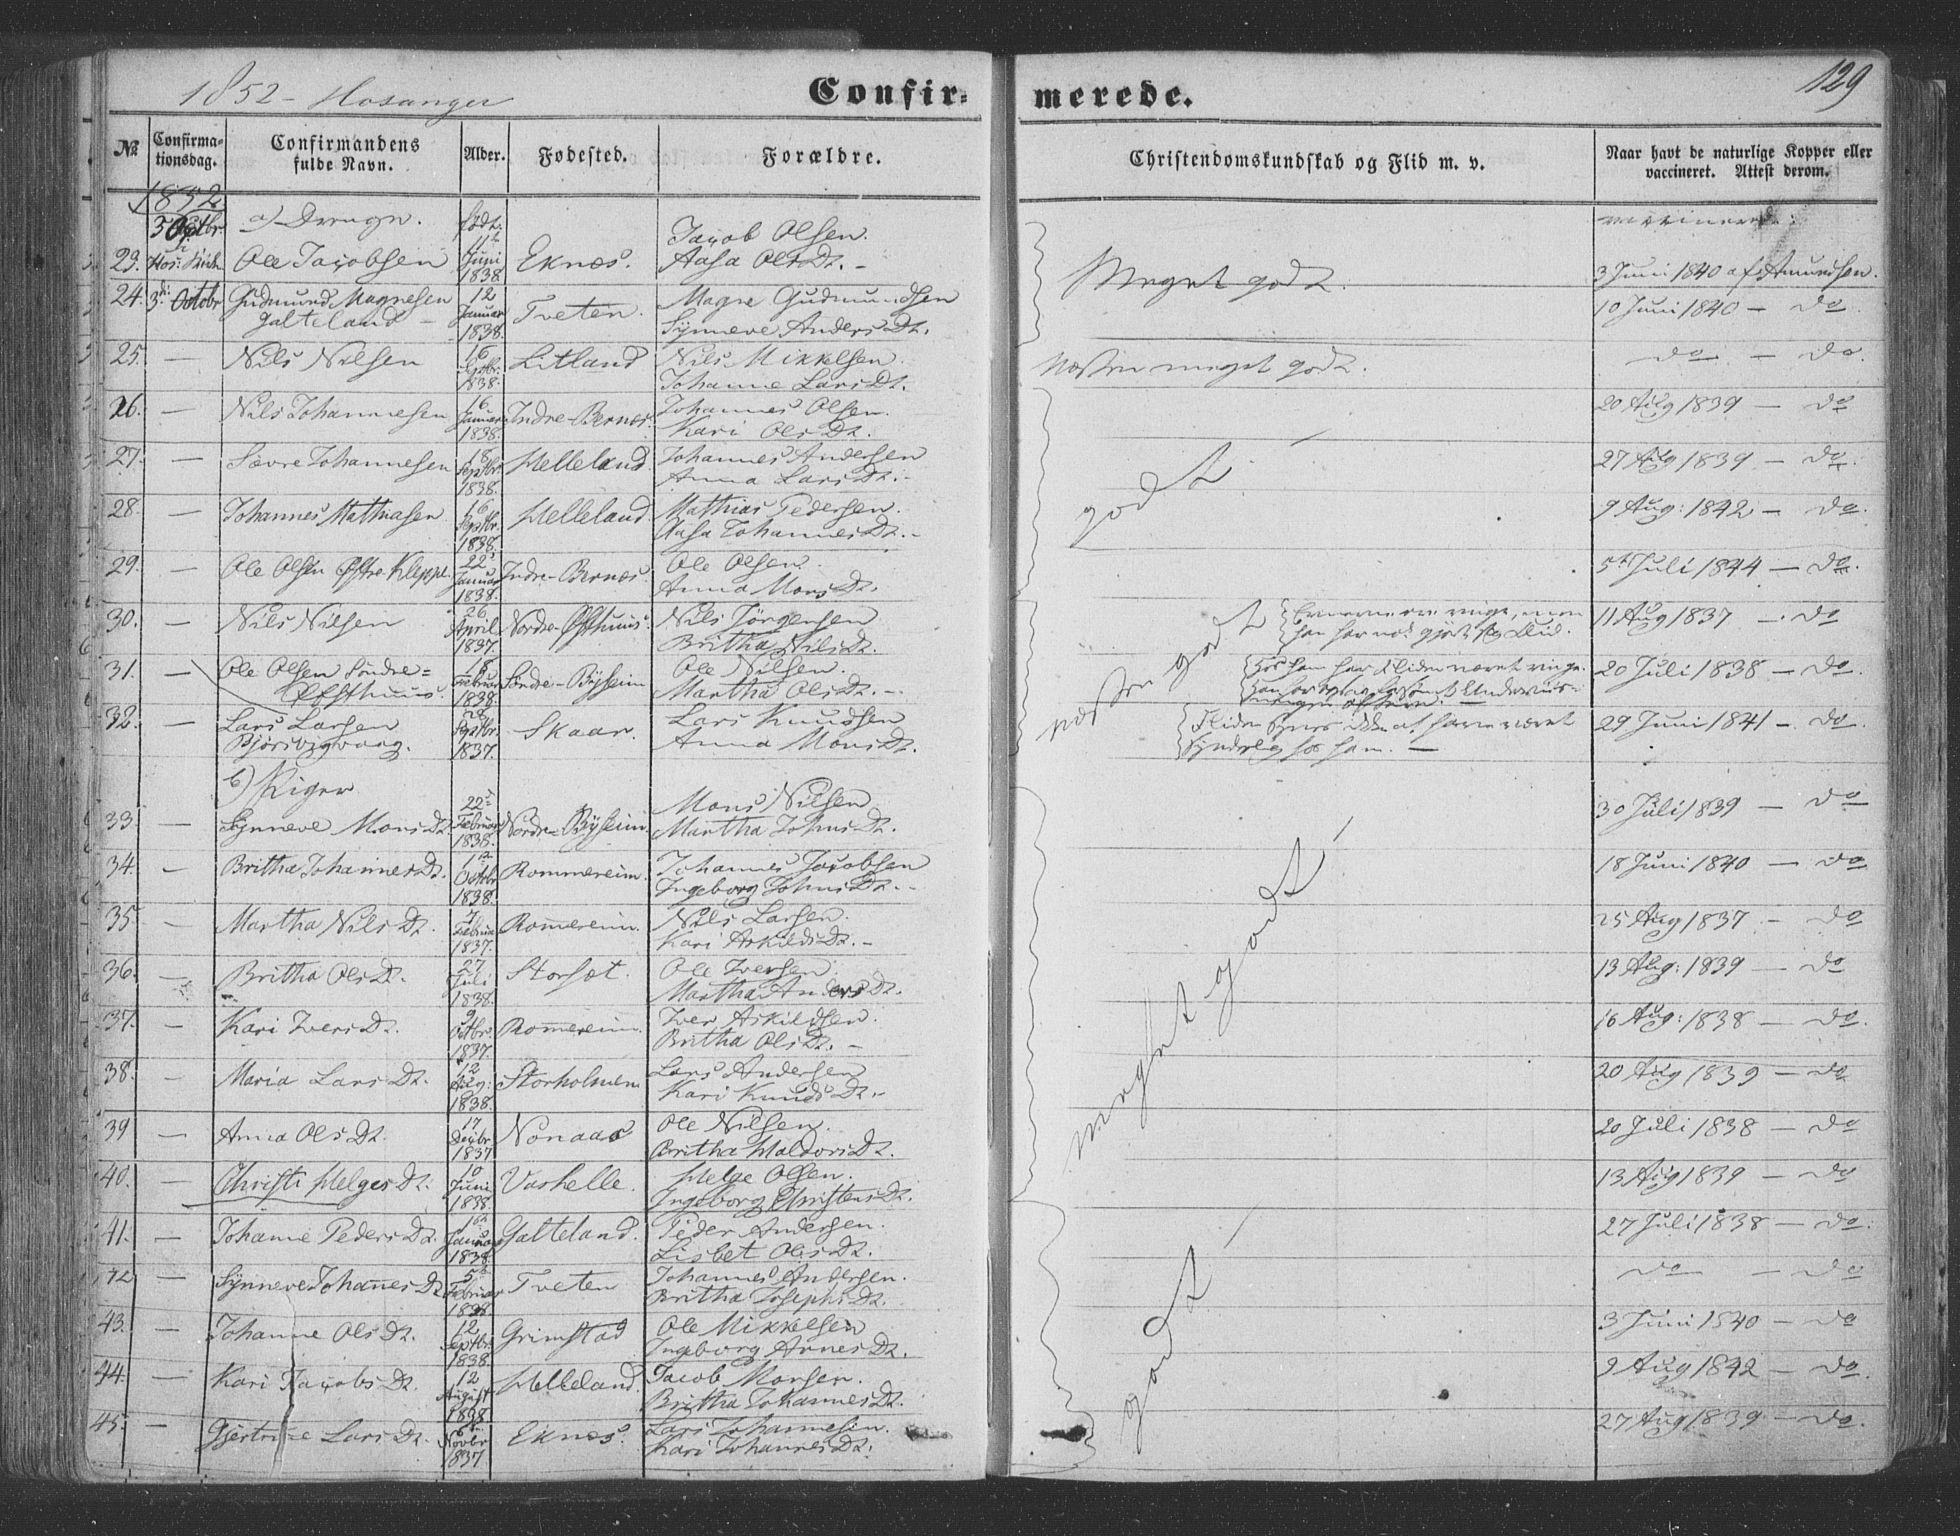 1852 - Hosanger
Confir-
merede.
129
No
Confirmationsdag.
Confirmandens fulde Navn.
Alder.
Fødested.
Forældre.
Christendomskundskab og Flid m. v.
Naar havt de naturlige Kopper eller vaccineret. Attest derom.
1852
a) Drenge. født.
vaccinerede:
23. Ole Jacobsen 11te Juni 1838 Eknæs. Jacob Olsen. Aasa OlsDt. - Meget godt. 3 Juni 1840 af Amundsen.
24. 3die Octobr Gudmund Magnesen Galteland - 12 Januar 1838. Tveten. Magne Gudmundsen Synneve AndersDt. 10 Juni 1840 - do
25. - Nils Nilsen 16 Septbr. 1838. Litland Nils Mikkelsen. Johanne LarsDt. Næsten meget godt. do - do.
26. - Nils Johannesen 16 Januar 1838. Indre-Bernæs. Johannes Olsen. Kari OlsDt. 20 Aug 1839 - do
27. - Sævre Johannesen 18 Septbr. 1838. Helleland Johannes Andersen Anna LarsDt. - godt 27 Aug 1839 - do.
28. - Johannes Mathiasen 16 Septbr. 1838. Helleland. Mathias Pedersen. Aasa JohannesDt. - 9 Aug: 1842 - do.
29. - Ole Olsen Østre Kleppe. 22 Januar 1838. Indre-Bernæs. Ole Olsen. Anna MonsDt. 5te Juli 1844 - do.
30. - Nils Nilsen 26 April 1837. Nordre-Østhuus. Nils Jörgensen Britha NilsDt. næsten godt Evnerne ere ringe, men han har nok gjort sig Flid. 11 Aug 1837 - do
31. - Ole Olsen Söndre= Østhuus. 18 Februar 1838. Söndre-Byseim Ole Nilsen. Martha OlsDt. - Hos ham har Fliden været ringe. 20 Juli 1838 - do
32. - Lars Larsen Bjørsvigvaag. 28 Septbr. 1837. Skaar. Lars Knudsen Anna MonsDt. Fliden synes ikke at have været synderlig hos ham. - 29 Juni 1841 - do.
b) Piger
33. - Synneve MonsDt. 22de Februar 1838. Nordre-Byseim. Mons Nilsen Martha JohnsDt. 30 Juli 1839 - do
34. - Britha JohannesDt. 1te Octobr 1838. Rommereim. Johannes Jacobsen Ingeborg JohnsDt. - 18 Juni 1840 - do
35 - Martha NilsDt. 7 Februar 1837. Romereim. Nils Larsen. Kari AskildsDt. - meget godt 25 Aug 1837 - do
36. - Britha OlsDt. 27 Juli 1838. Storsæt. Ole Iversen. Martha AndersDt. 13 Aug: 1839 - do
37. - Kari IversDt. 9 Octbr 1837. Romereim. Iver Askildsen. Britha OlsDt. - 16 Aug: 1838 - do.
38. - Maria LarsDt. 12 Aug: 1838. Storholmen Lars Andersen Kari KnudsDt. - 20 Aug 1839 - do
39 - Anna OlsDt. 17 Decbr 1837 Nonaas Ole Nilsen. Britha HaldorsDt. 20 Juli 1838 - do
40. - Christi HelgesDt. 10 Juni 1838. Vashelle. Helge Olsen. Ingeborg ChristensDt. 13 Aug 1839 - do
41. - Johanne PedersDt. 1te Januar 1838. Galteland. Peder Andersen. Lisbet OlsDt. 27 Juli 1838 - do.
42 - Synneve JohannesDt. 5te Februar 1838 Tveten Johannes Andersen. Britha JosephsDt. do - do
43. - Johanne OlsDt. 12 Septbr. 1838. Grimstad Ole Mikkelsen Ingeborg ArnesDt. godt 3 Juni 1840 - do
44. - Kari JacobsDt. 12 August 1838. Helleland. Jacob Monsen. Britha JohannesDt. 9 Aug 1842 - do.
45. - Gjertrue LarsDt. 6te Novbr 1837 Eknæs. Lars Johannesen. Kari JohannesDt. 27 Aug 1839 - do.